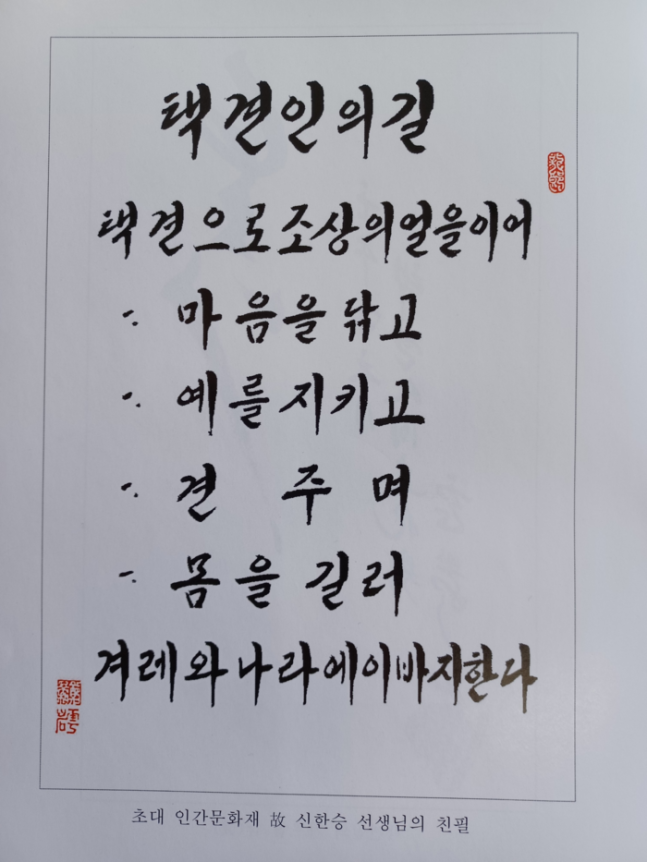 택견인의길
택견으로조상의얼을이어
一. 마음을닦고
一. 예를지키고
一. 견주며
一. 몸을길러
겨레와나라에이바지한다
초대 인간문화재 故 신한승 선생님의 친필